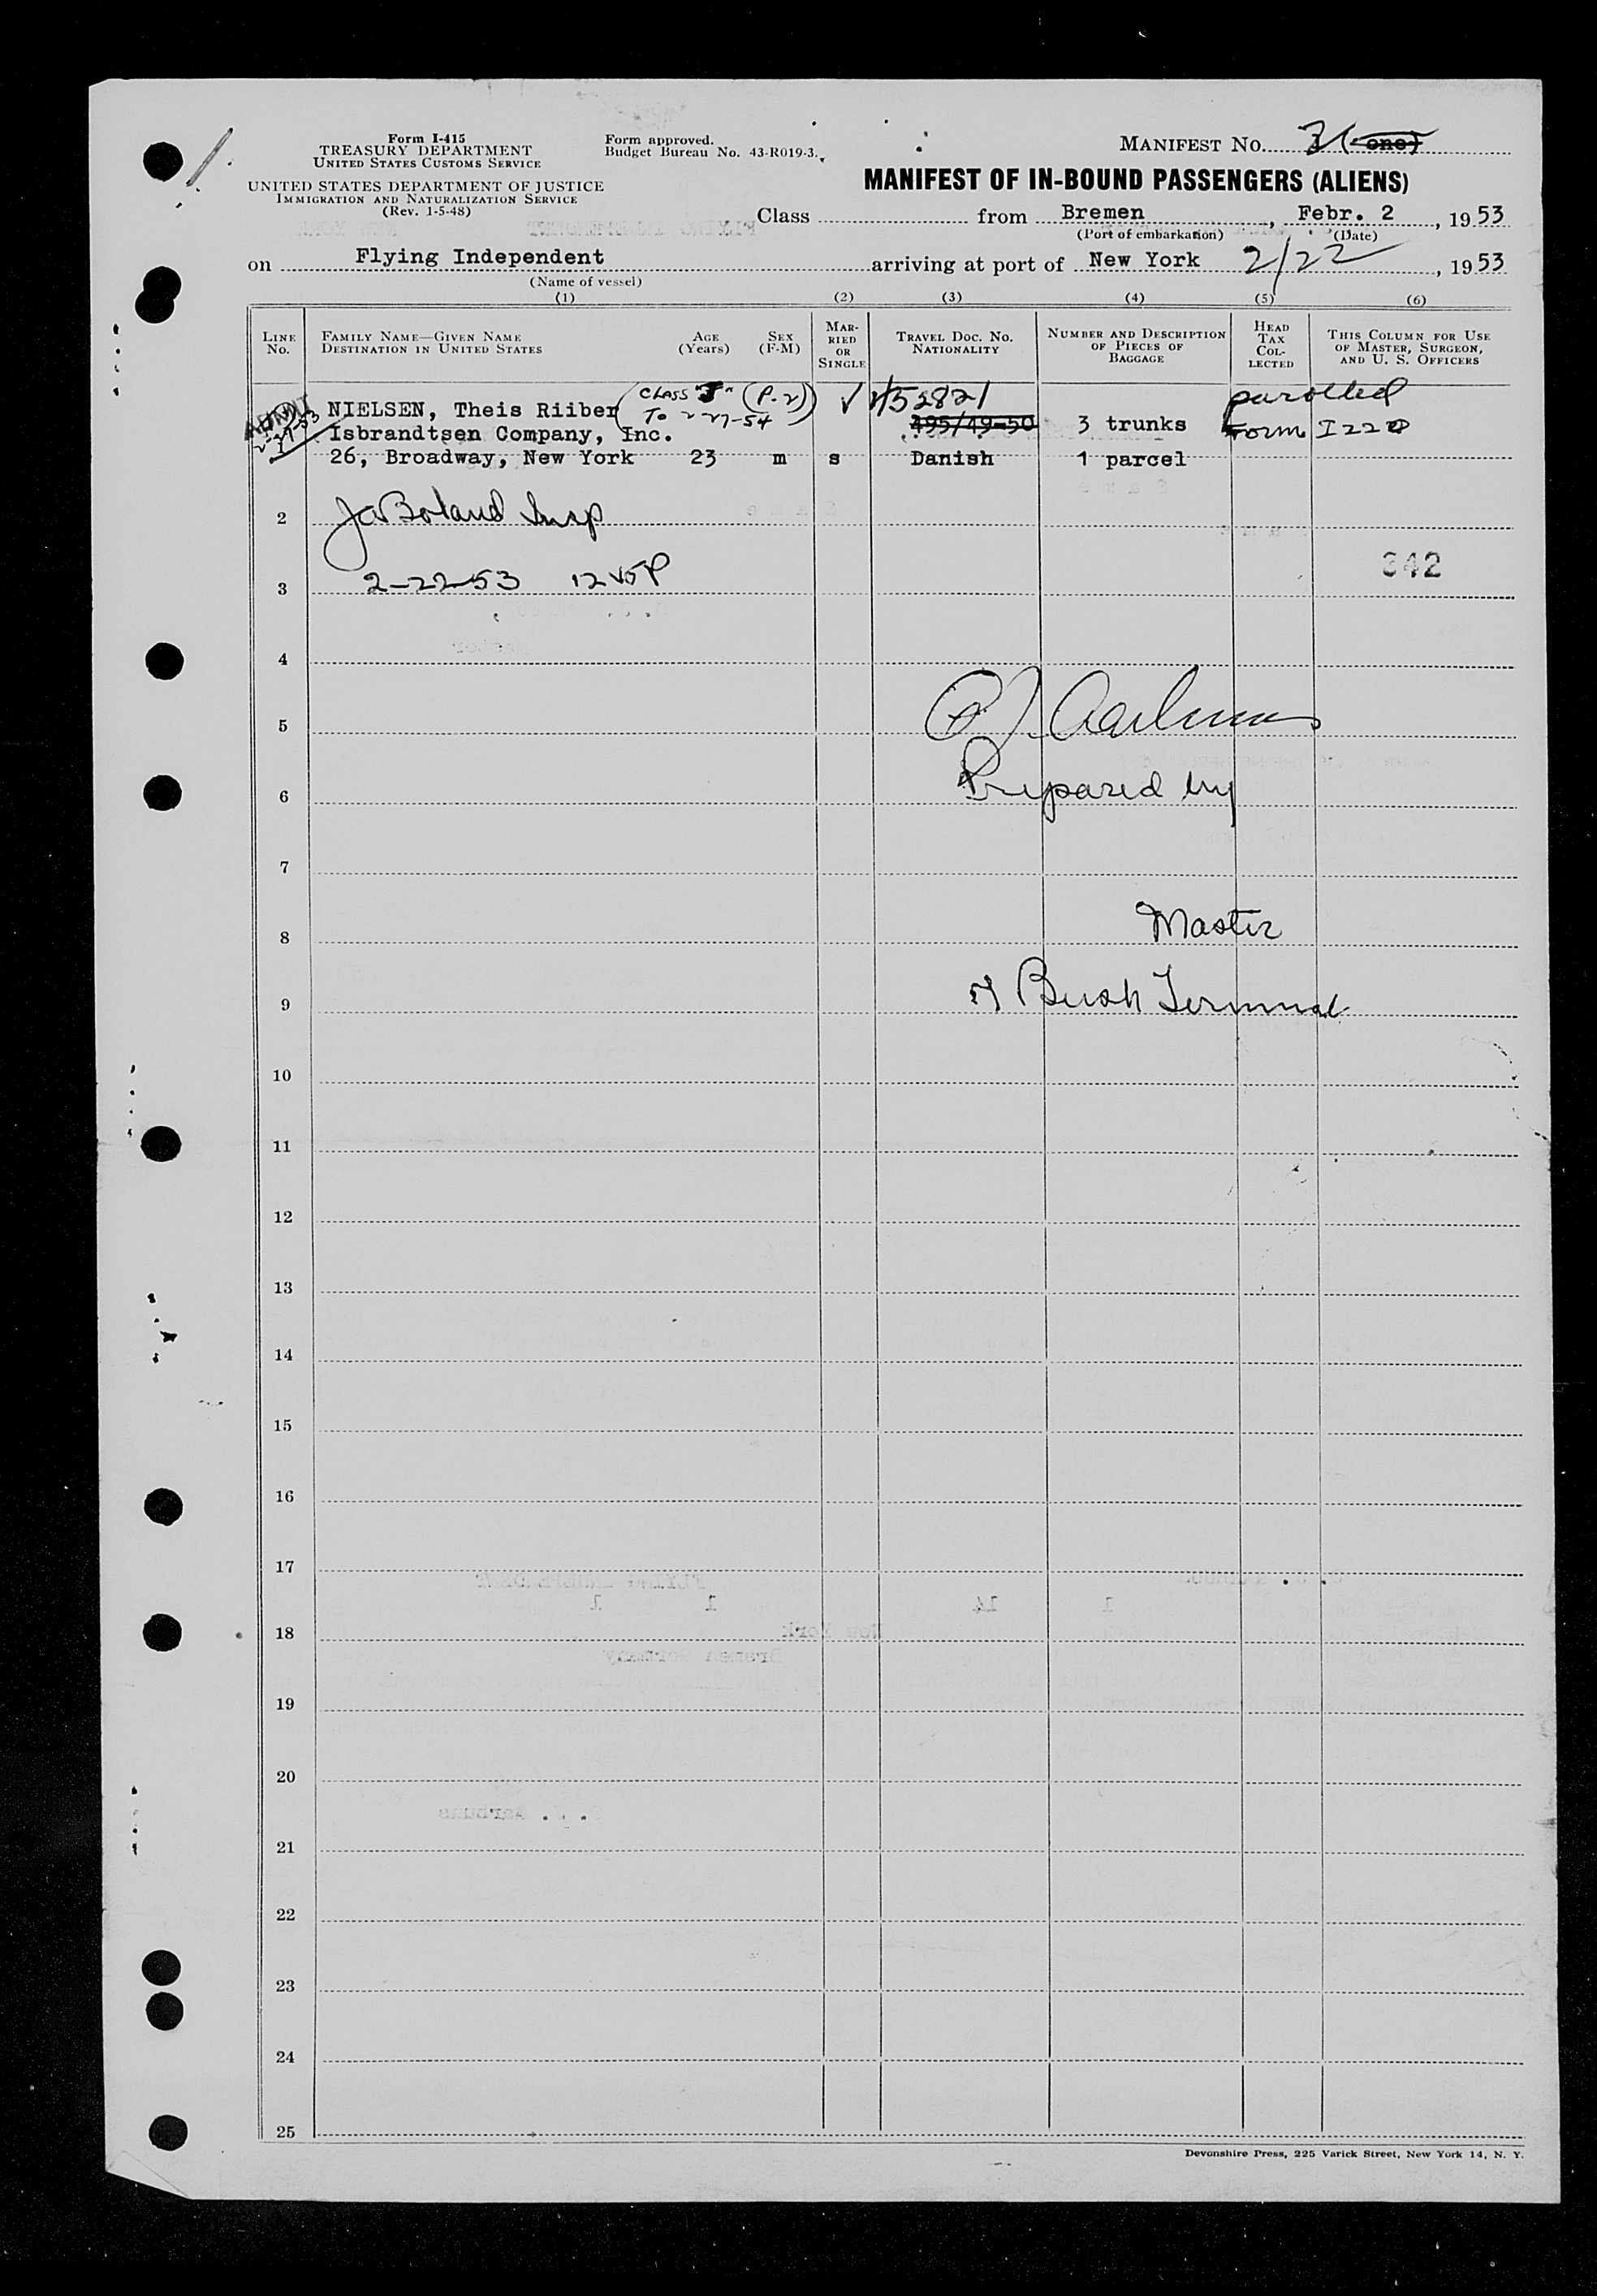 Form I-415
TREASURY DEPARTMENT
UNITED STATES CUSTOMS SERVICE
UNITED STATES DEPARTMENT OF JUSTICE
IMMIGRATION AND NATURALIZATION SERVICE
(Rev. 1-5-48)
Form approved.
Budget Bureau No. 43-R019-3.
MANIFEST No.
MANIFEST OF IN-BOUND PASSENGERS (ALIENS)
Class from Bremen, Febr. 2, 1953
(Port of embarkation) (Date)
on Flying Independent arriving at port of New York 2/22, 1953
(Name of vessel)
(1) (2) (3) (4) (5) (6)
LINE No. FAMILY NAME—GIVEN NAME DESTINATION IN UNITED STATES AGE (Years) SEX (F-M) MARRIED OR SINGLE TRAVEL DOC. NO. NATIONALITY NUMBER AND DESCRIPTION OF PIECES OF BAGGAGE HEAD TAX COLLECTED THIS COLUMN FOR USE OF MASTER, SURGEON, AND U. S. OFFICERS
CLASS "J" (P-2) parolled
NIELSEN, Theis Riiber To 2-27-54 52821
Isbrandtsen Company, Inc. 495/49-50 3 trunks Form I 220
26, Broadway, New York 23 m s Danish 1 parcel
2 Boland Insp
342
3 2-22-53
4
5
6 Prepared by
7
8 Master
9 Bush Terminal
10
11
12
13
14
15
16
17
18
19
20
21
22
23
24
25
Devonshire Press, 225 Varick Street, New York 14, N. Y.